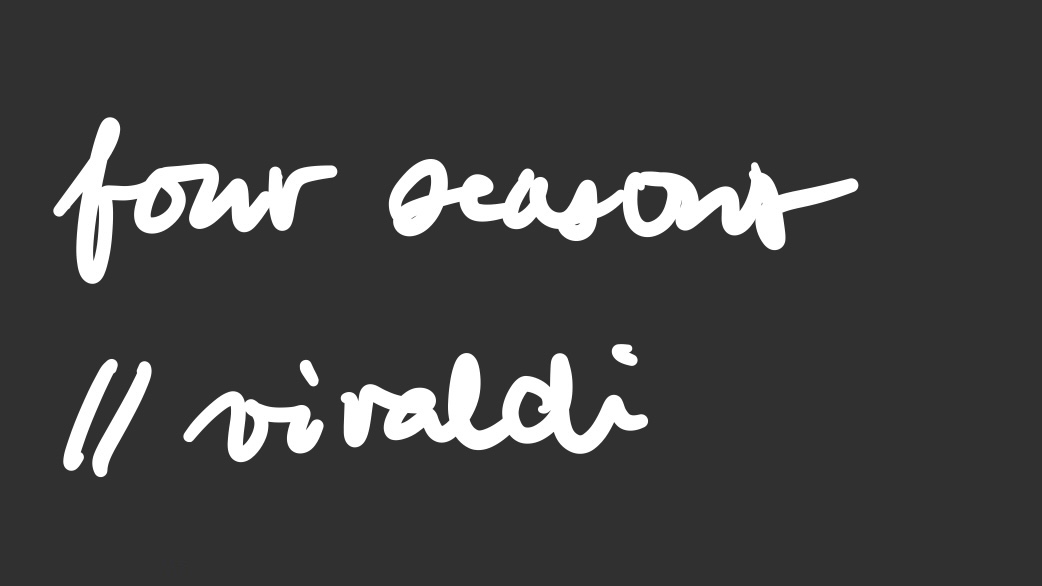 four seasons
// vivaldi